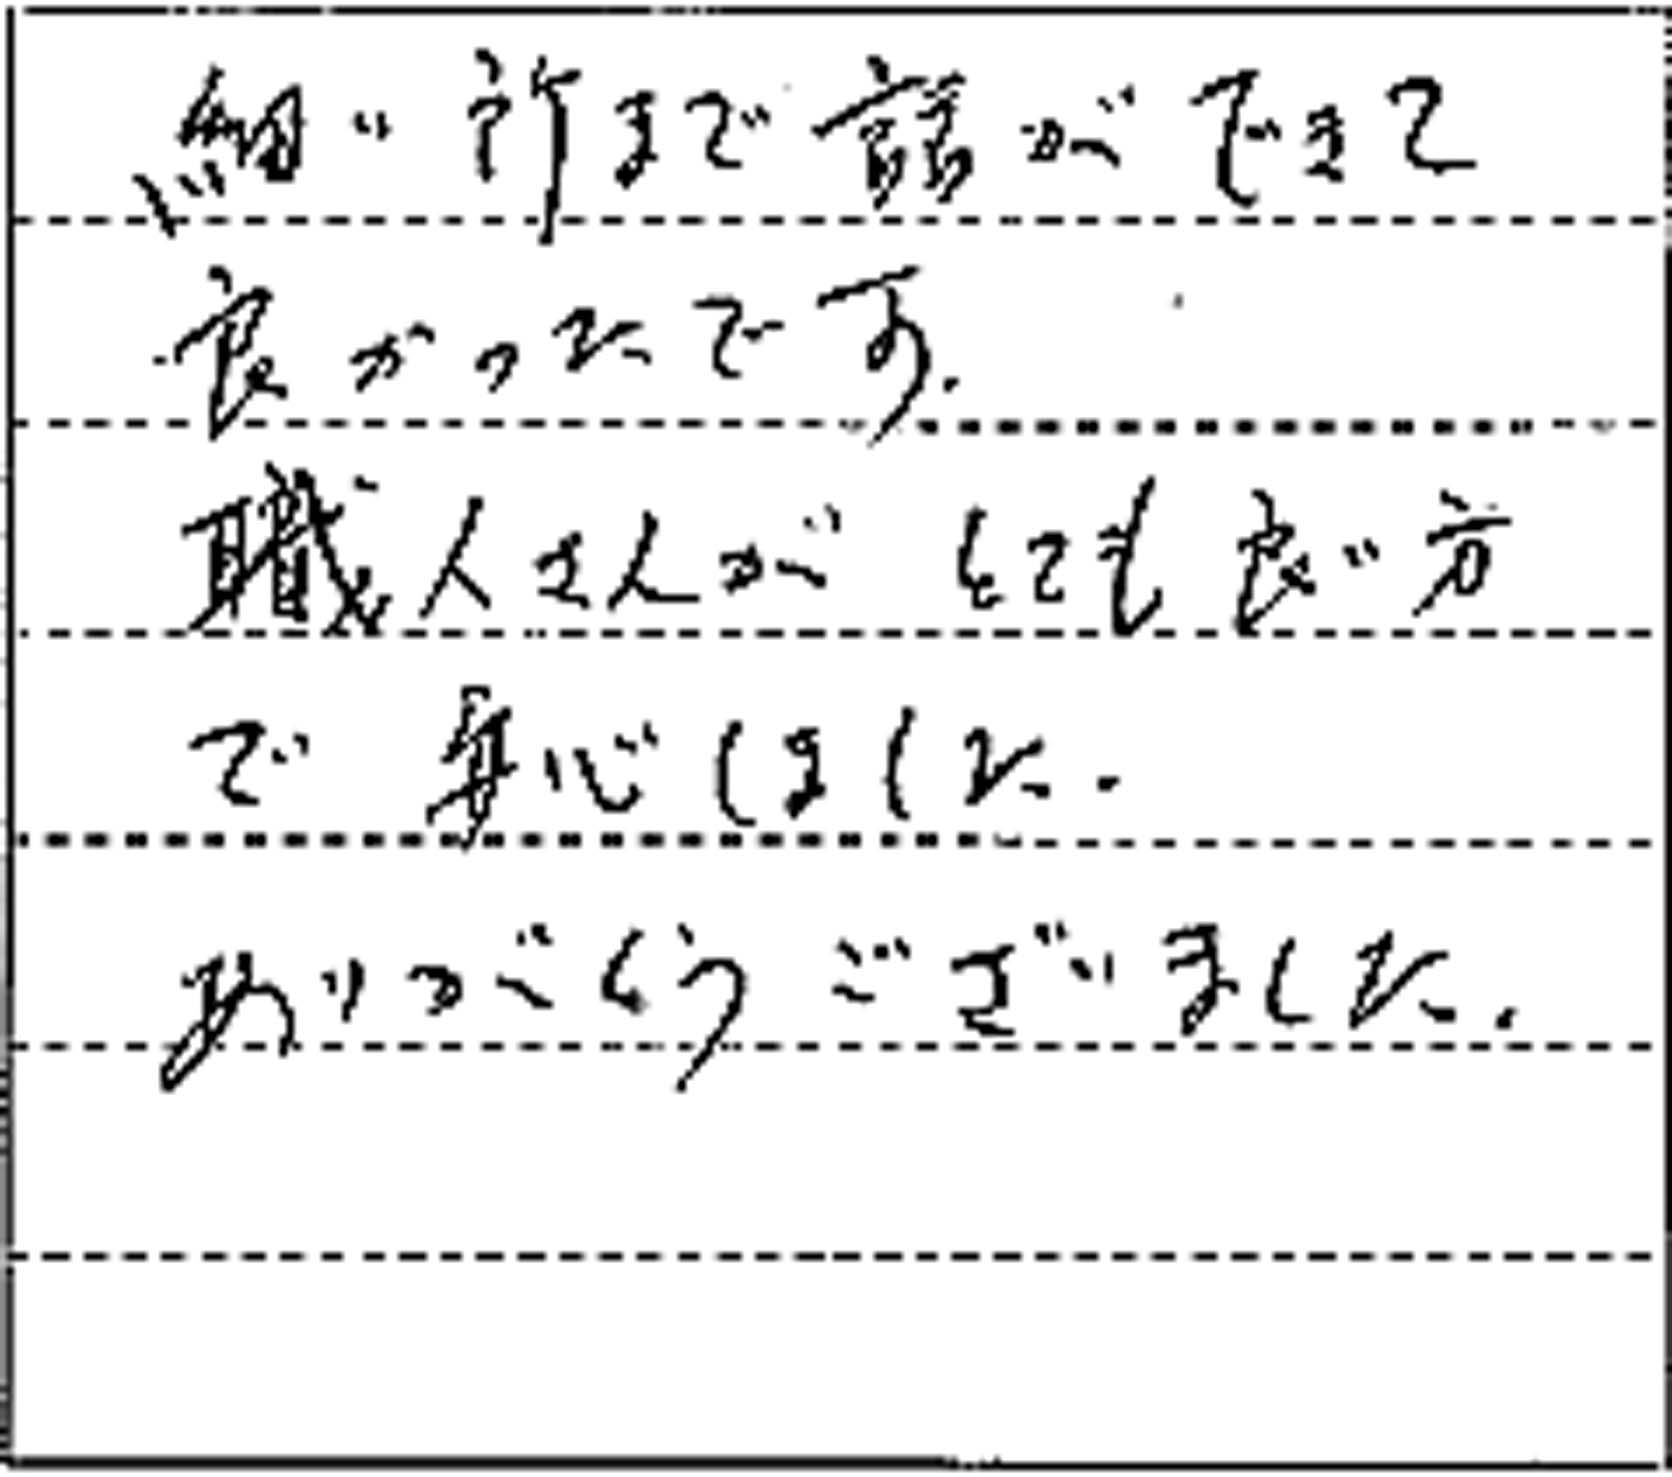 細い所まで話ができて
良かったです.
職人さんが とても良い方
で 安心しました.
ありがとうございました.